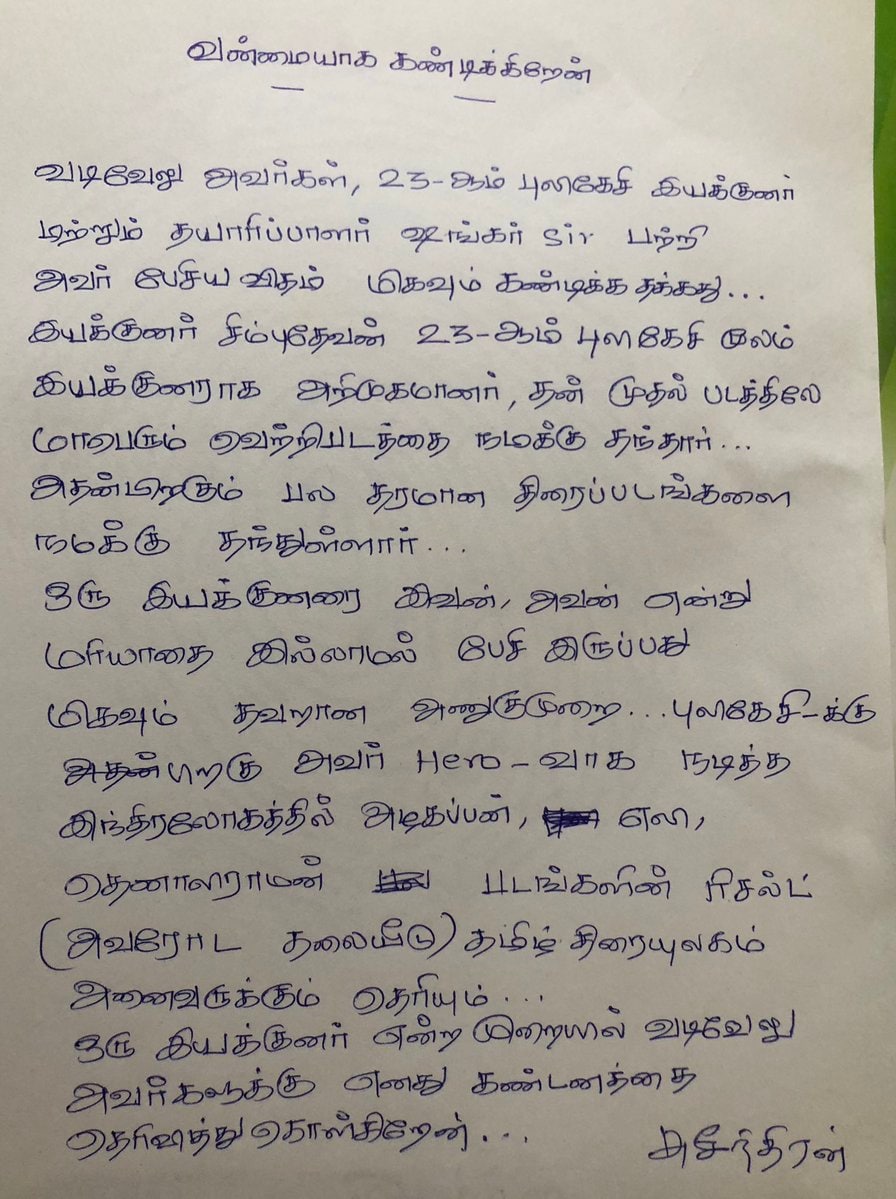 வன்மையாக கண்டிக்கிறேன்
வடிவேலு அவர்கள், 23-ஆம் புலிகேசி இயக்குனர்
மற்றும் தயாரிப்பாளர் ஷங்கர் sir பற்றி
அவர் பேசிய விதம் மிகவும் கண்டிக்க தக்கது...
இயக்குனர் சிம்புதேவன் 23-ஆம் புலிகேசி மூலம்
இயக்குனராக அறிமுகமானர், தன் முதல் படத்திலே
மாபெரும் வெற்றிபடத்தை நமக்கு தந்தார்...
அதன்பிறகும் பல தரமான திரைப்படங்களை
நமக்கு தந்துள்ளார்...
ஒரு இயக்குனரை இவன், அவன் என்று
மரியாதை இல்லாமல் பேசி இருப்பது
மிகவும் தவறான அணுகுமுறை... புலிகேசி-க்கு
அதன்பிறகு அவர் Hero-வாக நடித்த
இந்திரலோகத்தில் அழகப்பன், எலி,
தெனாலிராமன் படங்களின் ரிசல்ட்
(அவரோட தலையீடு) தமிழ் திரையுலகம்
அனைவருக்கும் தெரியும்...
ஒரு இயக்குனர் என்ற முறையில் வடிவேலு
அவர்களுக்கு எனது கண்டனத்தை
தெரிவித்து கொள்கிறேன்...
சுசீந்திரன்